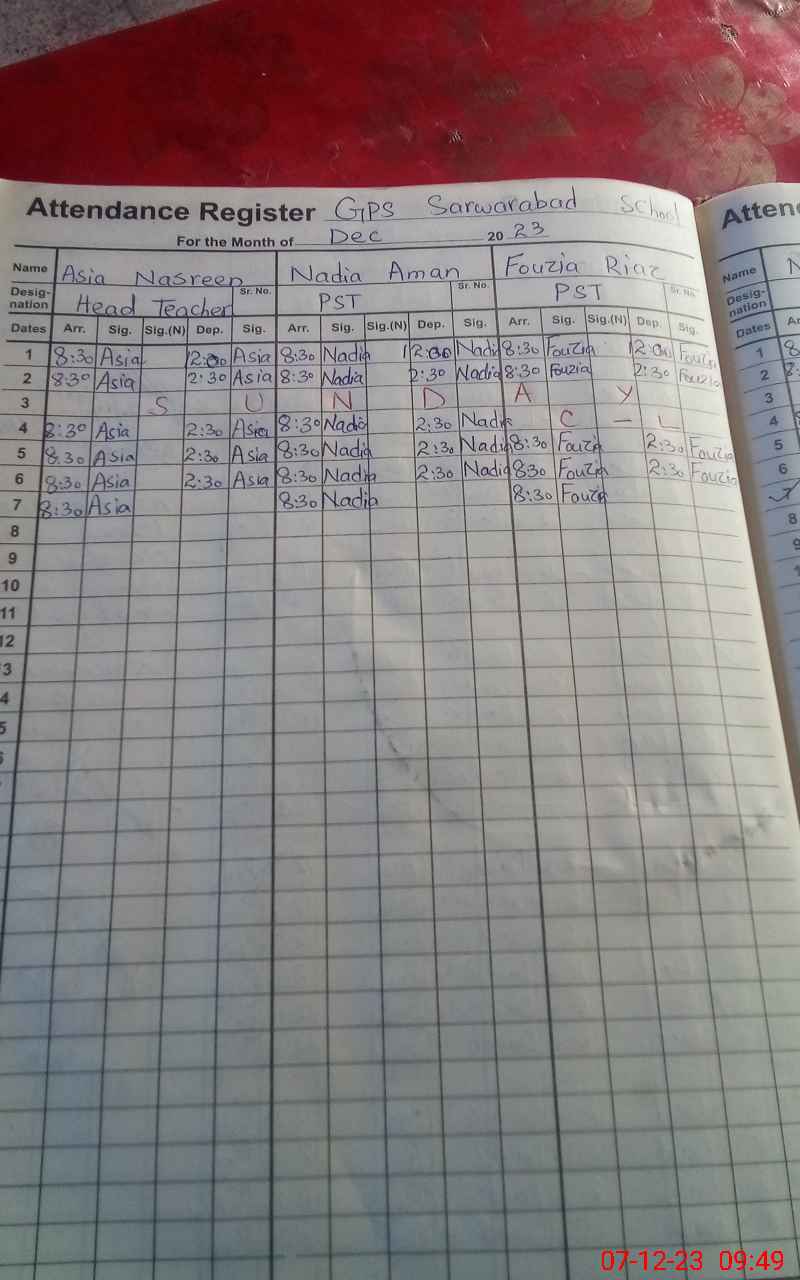 Attendance Register GPS Sarwarabad School
For the Month of Dec 2023
Name Asia Nasreen Nadia Aman Fouzia Riaz
Desig-nation Head Teacher Sr. No. PST Sr. No. PST Sr. No.
Dates Arr. Sig. Sig.(N) Dep. Sig. Arr. Sig. Sig.(N) Dep. Sig. Arr. Sig. Sig.(N) Dep. Sig.
1 8:30 Asia 12:00 Asia 8:30 Nadia 12:00 Nadia 8:30 Fouzia 12:00 Fouzia
2 8:30 Asia 2:30 Asia 8:30 Nadia 2:30 Nadia 8:30 Fouzia 2:30 Fouzia
3 S U N D A Y
4 8:30 Asia 2:30 Asia 8:30 Nadia 2:30 Nadia C - L
5 8:30 Asia 2:30 Asia 8:30 Nadia 2:30 Nadia 8:30 Fouzia 2:30 Fouzia
6 8:30 Asia 2:30 Asia 8:30 Nadia 2:30 Nadia 8:30 Fouzia 2:30 Fouzia
7 8:30 Asia 8:30 Nadia 8:30 Fouzia
8
9
10
11
12
3
4
5
Atten
Name N
Desig-nation
Dates A
1 8
2 8:
3
4
5
6
7
8
9
07-12-23 09:49